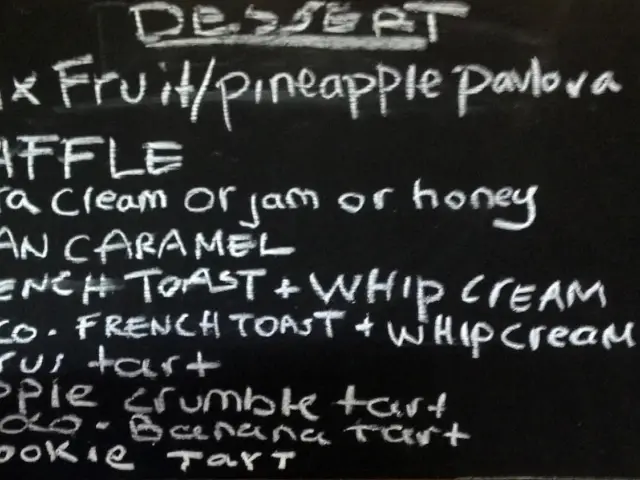 DESSERT
ix Fruit/pineapple pavlova
AFFLE
ra cream or jam or honey
AN CARAMEL
ENCH TOAST + WHIP CREAM
CO. FRENCH TOAST + WHIP cream
rus tart
pple crumble tart
oco. Banana tart
ookie Tart